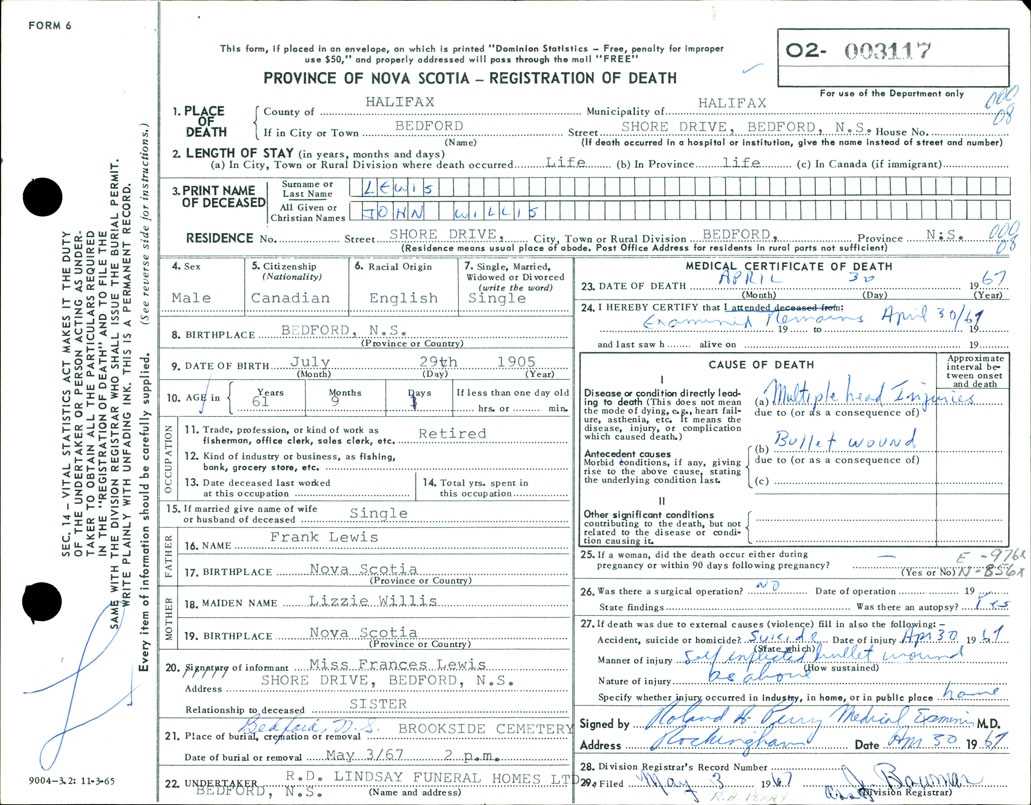 FORM 6
This form, if placed in an envelope, on which is printed "Dominion Statistics – Free, penalty for improper
use $50," and properly addressed will pass through the mail "FREE"
PROVINCE OF NOVA SCOTIA – REGISTRATION OF DEATH
O2- 003117
For use of the Department only
000
08
1. PLACE OF DEATH
County of HALIFAX Municipality of HALIFAX
If in City or Town BEDFORD Street SHORE DRIVE, BEDFORD, N.S. House No.
(Name) (If death occurred in a hospital or institution, give the name instead of street and number)
2. LENGTH OF STAY (in years, months and days)
(a) In City, Town or Rural Division where death occurred Life (b) In Province life (c) In Canada (if immigrant)
3. PRINT NAME OF DECEASED
Surname or Last Name LEWIS
All Given or Christian Names JOHN WILLIS
RESIDENCE No. Street SHORE DRIVE, City, Town or Rural Division BEDFORD, Province N.S.
(Residence means usual place of abode. Post Office Address for residents in rural parts not sufficient)
000
08
4. Sex
Male
5. Citizenship
(Nationality)
Canadian
6. Racial Origin
English
7. Single, Married,
Widowed or Divorced
(write the word)
Single
8. BIRTHPLACE BEDFORD, N.S.
(Province or Country)
9. DATE OF BIRTH July 29th 1905
(Month) (Day) (Year)
10. AGE in Years Months Days If less than one day old
61 9 1 hrs. or min.
OCCUPATION
11. Trade, profession, or kind of work as
fisherman, office clerk, sales clerk, etc. Retired
12. Kind of industry or business, as fishing,
bank, grocery store, etc.
13. Date deceased last worked
at this occupation
14. Total yrs. spent in
this occupation
15. If married give name of wife
or husband of deceased Single
FATHER
16. NAME Frank Lewis
17. BIRTHPLACE Nova Scotia
(Province or Country)
MOTHER
18. MAIDEN NAME Lizzie Willis
19. BIRTHPLACE Nova Scotia
(Province or Country)
20. Signature of informant Miss Frances Lewis
Address SHORE DRIVE, BEDFORD, N.S.
Relationship to deceased SISTER
Bedford, N.S. BROOKSIDE CEMETERY
21. Place of burial, cremation or removal
Date of burial or removal May 3/67 2 p.m.
22. UNDERTAKER R.D. LINDSAY FUNERAL HOMES LTD
BEDFORD, N.S. (Name and address)
MEDICAL CERTIFICATE OF DEATH
23. DATE OF DEATH APRIL 30 1967
(Month) (Day) (Year)
24. I HEREBY CERTIFY that I attended deceased from:
Examined Remains April 30/67
19 to 19
and last saw h alive on 19
CAUSE OF DEATH
Approximate
interval be-
tween onset
and death
I
Disease or condition directly lead-
ing to death (This does not mean
the mode of dying, e.g., heart fail-
ure, asthenia, etc. It means the
disease, injury, or complication
which caused death.)
(a) Multiple head Injuries
due to (or as a consequence of)
Antecedent causes
Morbid conditions, if any, giving
rise to the above cause, stating
the underlying condition last.
(b) Bullet wound
due to (or as a consequence of)
(c)
II
Other significant conditions
contributing to the death, but not
related to the disease or condi-
tion causing it.
25. If a woman, did the death occur either during
pregnancy or within 90 days following pregnancy? —
(Yes or No)
E-976x
N-856x
26. Was there a surgical operation? NO Date of operation 19
State findings Was there an autopsy? Yes
27. If death was due to external causes (violence) fill in also the following:–
Accident, suicide or homicide? Suicide Date of injury Apr 30 1967
(State which)
Manner of injury Self inflicted bullet wound
(How sustained)
Nature of injury as above
Specify whether injury occurred in industry, in home, or in public place home
Signed by Roland A. Perry Medical Examiner M.D.
Address Rockingham Date Apr 30 1967
28. Division Registrar's Record Number
29. Filed May 3 1967
(Division Registrar)
R.A. PERRY
SEC. 14 – VITAL STATISTICS ACT MAKES IT THE DUTY
OF THE UNDERTAKER OR PERSON ACTING AS UNDER-
TAKER TO OBTAIN ALL THE PARTICULARS REQUIRED
IN THE "REGISTRATION OF DEATH" AND TO FILE THE
SAME WITH THE DIVISION REGISTRAR WHO SHALL ISSUE THE BURIAL PERMIT.
WRITE PLAINLY WITH UNFADING INK. THIS IS A PERMANENT RECORD.
Every item of information should be carefully supplied. (See reverse side for instructions.)
9004-3.2: 11-3-65